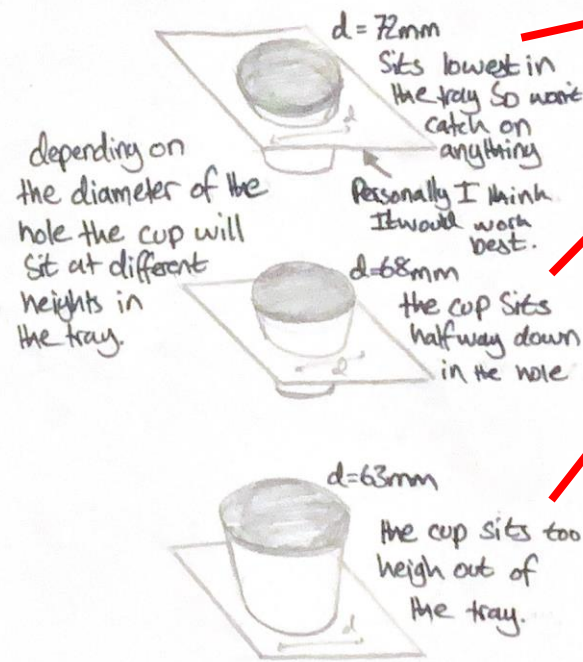 d = 72mm
Sits lowest in
the tray So won't
catch on
anything
Personally I think
It would work
best.
depending on
the diameter of the
hole the cup will
Sit at different
heights in
the tray.
d
d=68mm
the cup Sits
halfway down
in the hole
d
d=63mm
the cup sits too
heigh out of
the tray.
d